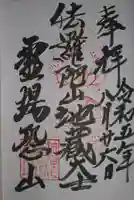 奉拝
令和五年八月廿六日
伽羅陀山地蔵尊
霊場恐山